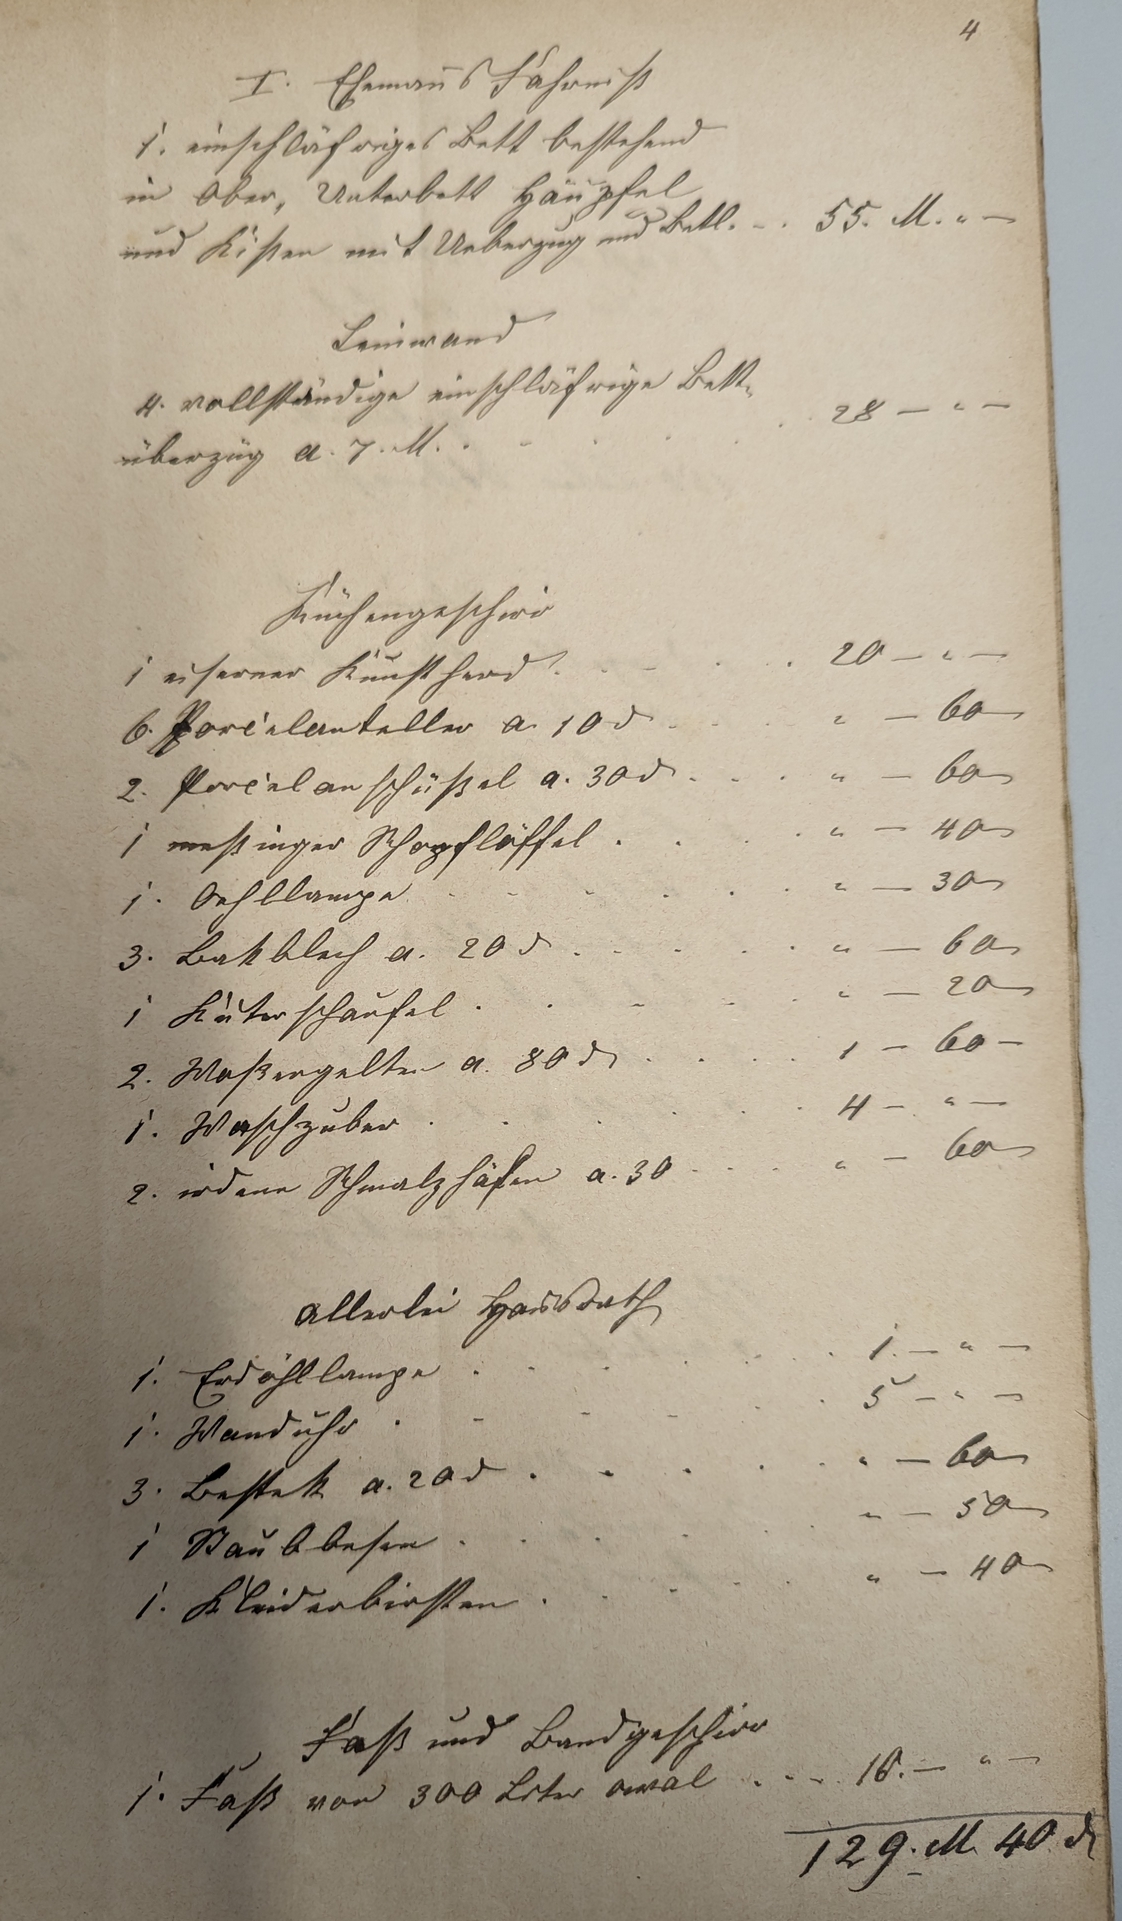 4
I. Ehemanns Fahrniß
1. einschläfriges Bett bestehend
in Ober, Unterbett Häupfel
und Kißen mit Ueberzug und Bettl. - . 55. M. " —
Leinwand
4. vollständige einschläfrige Bett-
überzüg a. 7. M. . - . . . . 28 — " —
Küchengeschirr
1 eiserner Kunstherd . . - . . 20 — " —
6. Porcelanteller a. 10 ₰ . . . " — 60 —
2. Porcelanschüßel a. 30 ₰ . . . " — 60
1 meßinger Schopflöffel . . . . " — 40
1. Oehllampe . - - . . . " — 30
3. Bakblech a. 20 ₰ . . . . . " — 60
1 Kuterschaufel . . - - . " — 20
2. Waßergelten a. 80 ₰ . . . . 1 — 60 —
1. Waschzuber . . . . . 4 — " —
2. irdene Schmalzhäfen a. 30 . . . " — 60
Allerlei Hausrath
1. Erdöhllampe . . . . . . 1. — " —
1. Wanduhr . - - - . . 5 — " —
3. Bestek a. 20 ₰ . . . . . " — 60
1 Staubbesen . . . . . " — 50
1. Kleiderbirsten . . . - . " — 40
Faß und Bandgeschirr
1. Faß von 300 Liter owal . - - 10. — " —
129. M. 40 ₰